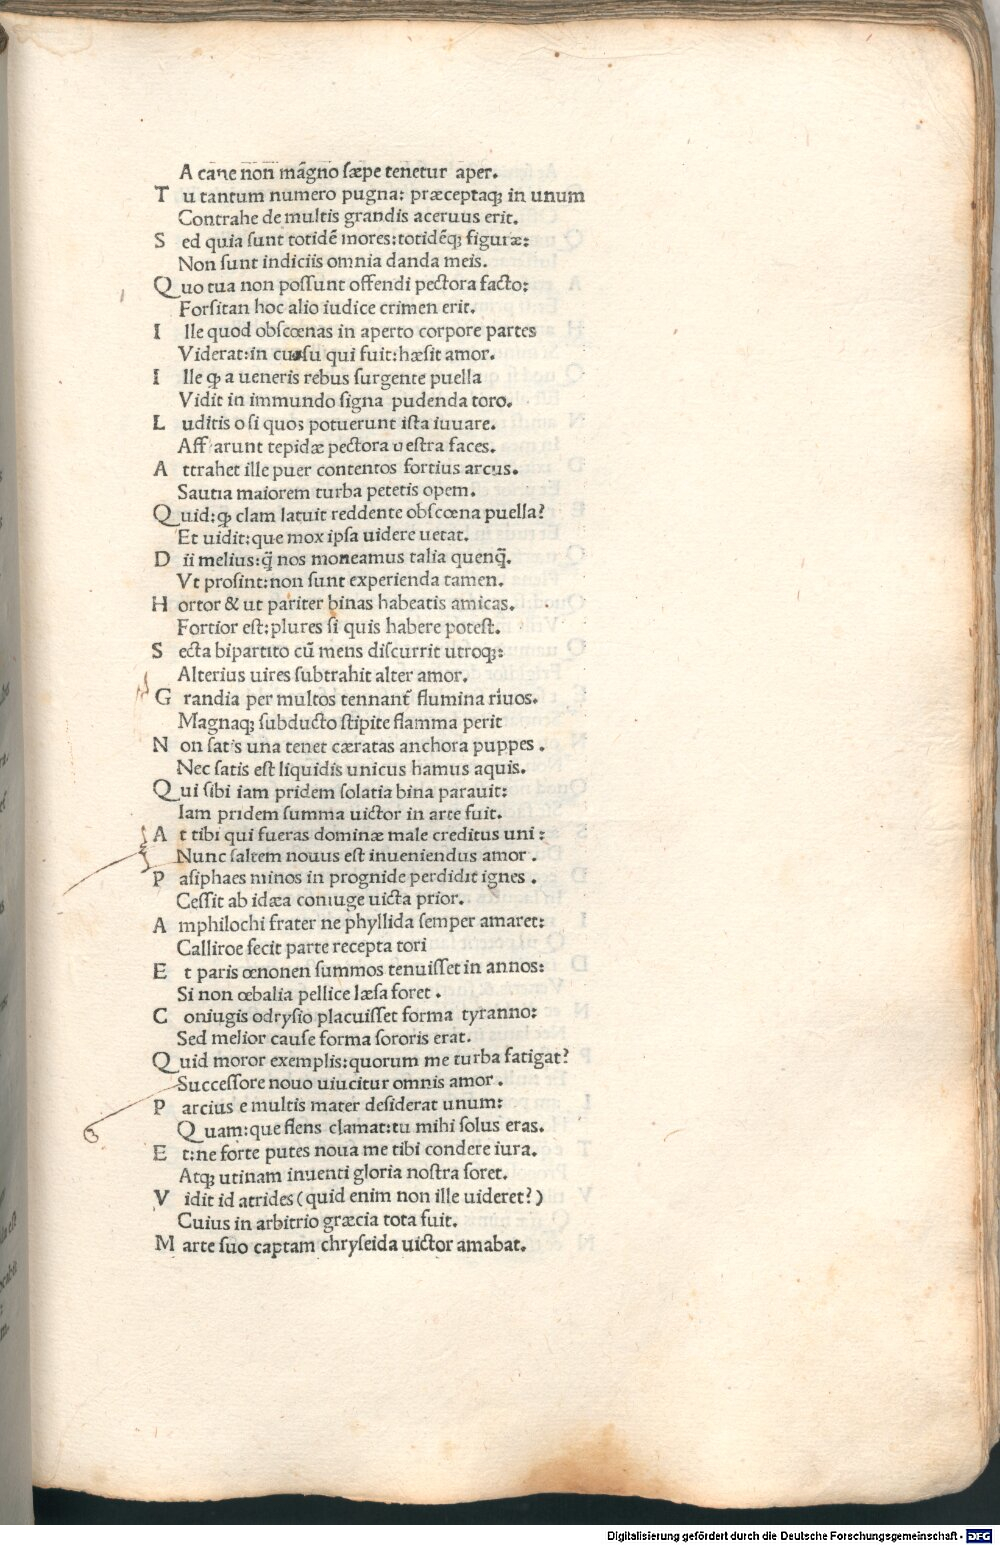 A cane non magno sæpe tenetur aper.
T u tantum numero pugna: præceptaqꝫ in unum
Contrahe de multis grandis aceruus erit.
S ed quia sunt totidē mores: totidēqꝫ figuræ:
Non sunt indiciis omnia danda meis.
Q uo tua non possunt offendi pectora facto:
Forsitan hoc alio iudice crimen erit.
I lle quod obscœnas in aperto corpore partes
Viderat: in cursu qui fuit: hæsit amor.
I lle ꝙ a ueneris rebus surgente puella
Vidit in immundo signa pudenda toro.
L uditis o si quos potuerunt ista iuuare.
Afflarunt tepidæ pectora uestra faces.
A ttrahet ille puer contentos fortius arcus.
Sautia maiorem turba petetis opem.
Q uid: ꝙ clam latuit reddente obscœna puella?
Et uidit: que mox ipsa uidere uetat.
D ii melius: q̄ nos moneamus talia quenq̄.
Vt prosint: non sunt experienda tamen.
H ortor & ut pariter binas habeatis amicas.
Fortior est: plures si quis habere potest.
S ecta bipartito cū mens discurrit utroqꝫ:
Alterius uires subtrahit alter amor.
G randia per multos tennanť flumina riuos.
Magnaqꝫ subducto stipite flamma perit
N on satis una tenet cæratas anchora puppes .
Nec satis est liquidis unicus hamus aquis.
Q ui sibi iam pridem solatia bina parauit:
Iam pridem summa uictor in arte fuit.
A t tibi qui fueras dominæ male creditus uni :
Nunc saltem nouus est inueniendus amor .
P asiphaes minos in prognide perdidit ignes .
Cessit ab idæa coniuge uicta prior.
A mphilochi frater ne phyllida semper amaret:
Calliroe fecit parte recepta tori
E t paris œnonen summos tenuisset in annos:
Si non œbalia pellice læsa foret .
C oniugis odrysio placuisset forma tyranno:
Sed melior cause forma sororis erat.
Q uid moror exemplis: quorum me turba fatigat?
Successore nouo uiucitur omnis amor .
P arcius e multis mater desiderat unum:
Q uam: que flens clamat: tu mihi solus eras.
E t: ne forte putes noua me tibi condere iura.
Atqꝫ utinam inuenti gloria nostra foret.
V idit id atrides (quid enim non ille uideret?)
Cuius in arbitrio græcia tota fuit.
M arte suo captam chryseida uictor amabat.
Digitalisierung gefördert durch die Deutsche Forschungsgemeinschaft - DFG